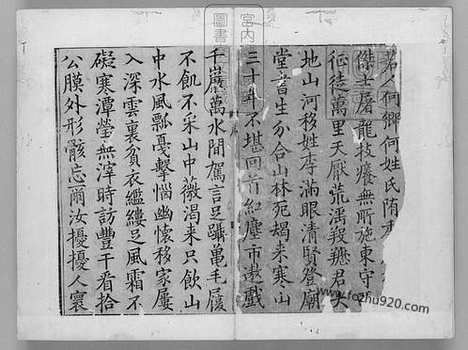 若人何鄉何姓氏隋末
傑士屠龍技癢無所施東守
征徒萬里天厭荒滛毅
地山河移姓李滿眼清賢登廟
堂書生分合山林死掲來寒山
三十年不堪回首紅塵市遨戲
千巖萬水間駕言足躡龜毛屐
不飢不采山中薇渴來只飲山
中水風瓢戞擊惱幽懷移家屢
入深雲裏貧衣繿縷足風霜不
礙寒潭瑩無滓時訪豐干看拾
公膜外形骸忘爾汝擾擾人寰
宮内
圖書
www.fozhu920.com